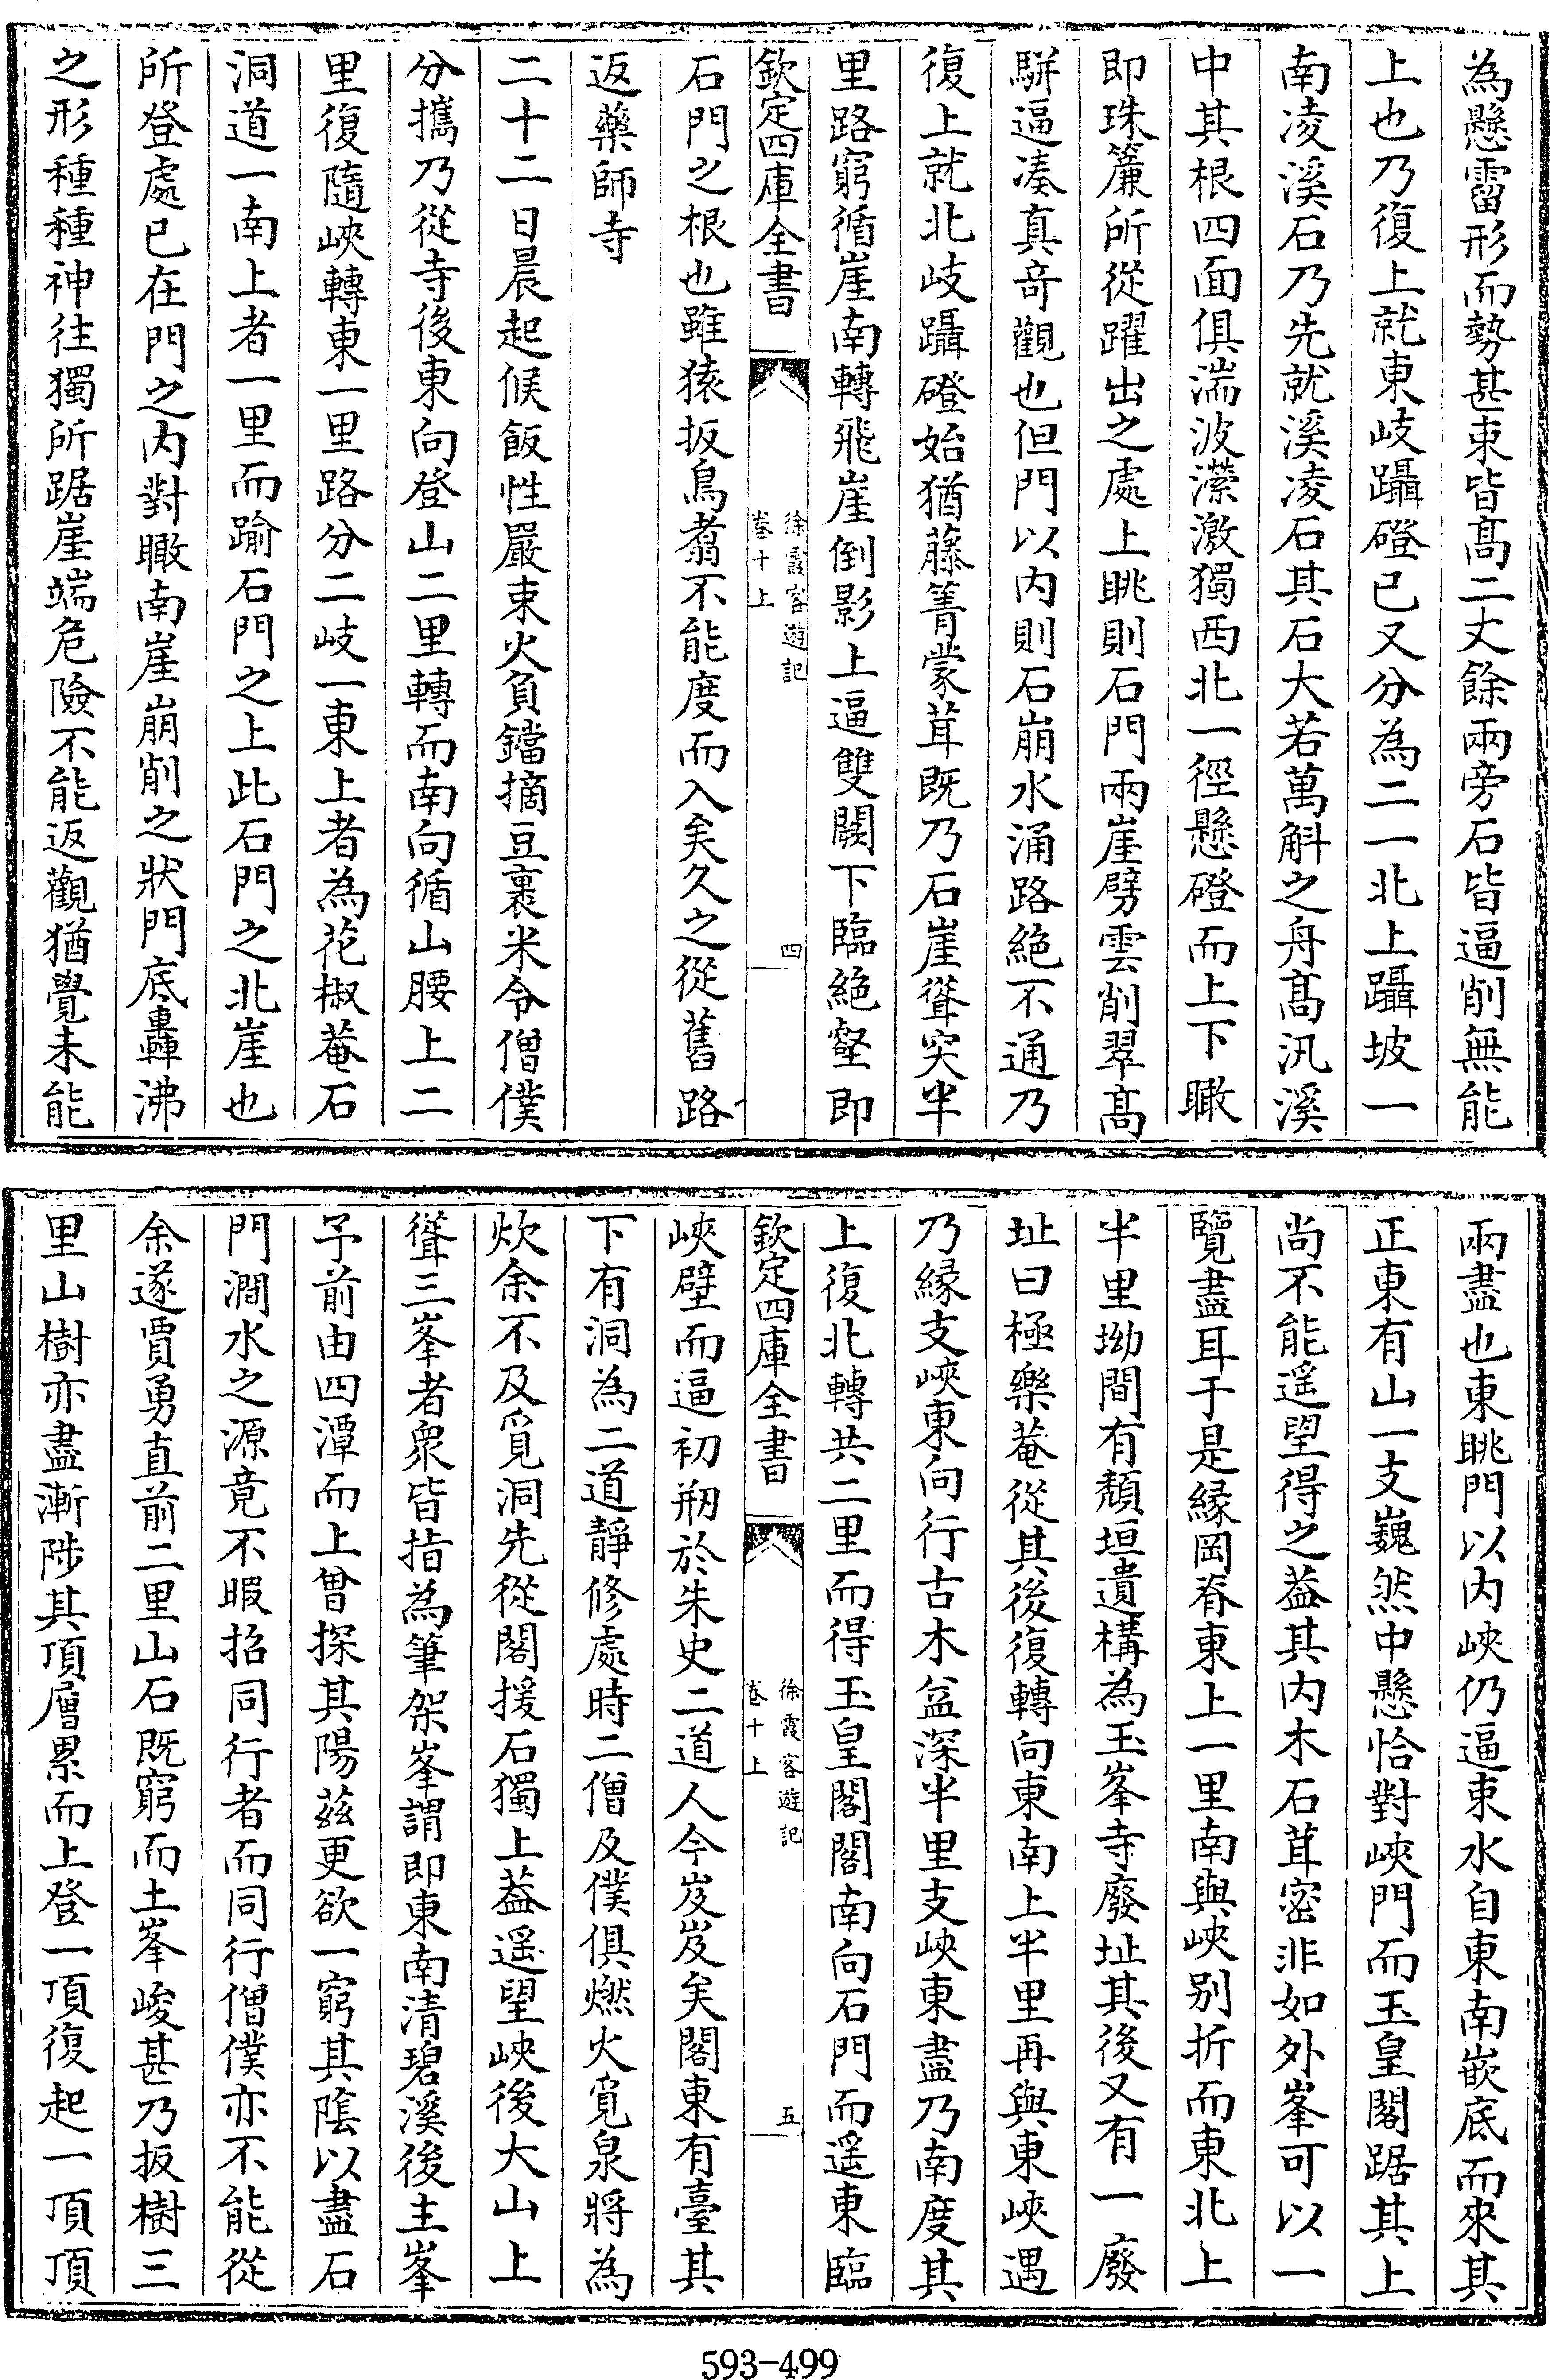 為懸霤形而勢甚束皆髙二丈餘兩旁石皆逼削無能
上也乃復上就東岐躡磴已又分為二一北上躡坡一
南凌溪石乃先就溪凌石其石大若萬斛之舟髙汎溪
中其根四面俱湍波瀠激獨西北一徑懸磴而上下瞰
即珠簾所從躍出之處上眺則石門兩崖劈雲削翠髙
駢逼凑真竒觀也但門以内則石崩水涌路絶不通乃
復上就北岐躡磴始猶藤箐蒙茸既乃石崖聳突半
里路窮循崖南轉飛崖倒影上逼雙闕下臨絶壑即
欽定四庫全書
徐霞客遊記
卷十上
四
石門之根也雖猿扳鳥翥不能度而入矣久之從舊路
返藥師寺
二十二日晨起候飯性嚴束火負鐺摘豆裹米令僧僕
分攜乃從寺後東向登山二里轉而南向循山腰上二
里復隨峽轉東一里路分二岐一東上者為花椒菴石
洞道一南上者一里而踰石門之上此石門之北崖也
所登處已在門之内對瞰南崖崩削之狀門底轟沸
之形種種神往獨所踞崖端危險不能返觀猶覺未能
兩盡也東眺門以内峽仍逼束水自東南嵌底而來其
正東有山一支巍然中懸恰對峽門而玉皇閣踞其上
尚不能遥望得之葢其内木石茸密非如外峯可以一
覽盡耳于是縁岡脊東上一里南與峽别折而東北上
半里坳間有頽垣遺構為玉峯寺廢址其後又有一廢
址曰極樂菴從其後復轉向東南上半里再與東峽遇
乃縁支峽東向行古木益深半里支峽東盡乃南度其
上復北轉共二里而得玉皇閣閣南向石門而遥東臨
欽定四庫全書
徐霞客遊記
卷十上
五
峽壁而逼初剏於朱史二道人今岌岌矣閣東有臺其
下有洞為二道靜修處時二僧及僕俱燃火覓泉將為
炊余不及覓洞先從閣援石獨上葢遥望峽後大山上
聳三峯者衆皆指為筆架峯謂即東南清碧溪後主峯
予前由四潭而上曾探其陽兹更欲一窮其陰以盡石
門澗水之源竟不暇招同行者而同行僧僕亦不能從
余遂賈勇直前二里山石既窮而土峯峻甚乃扳樹三
里山樹亦盡漸陟其頂層累而上登一頂復起一頂頂
593-499